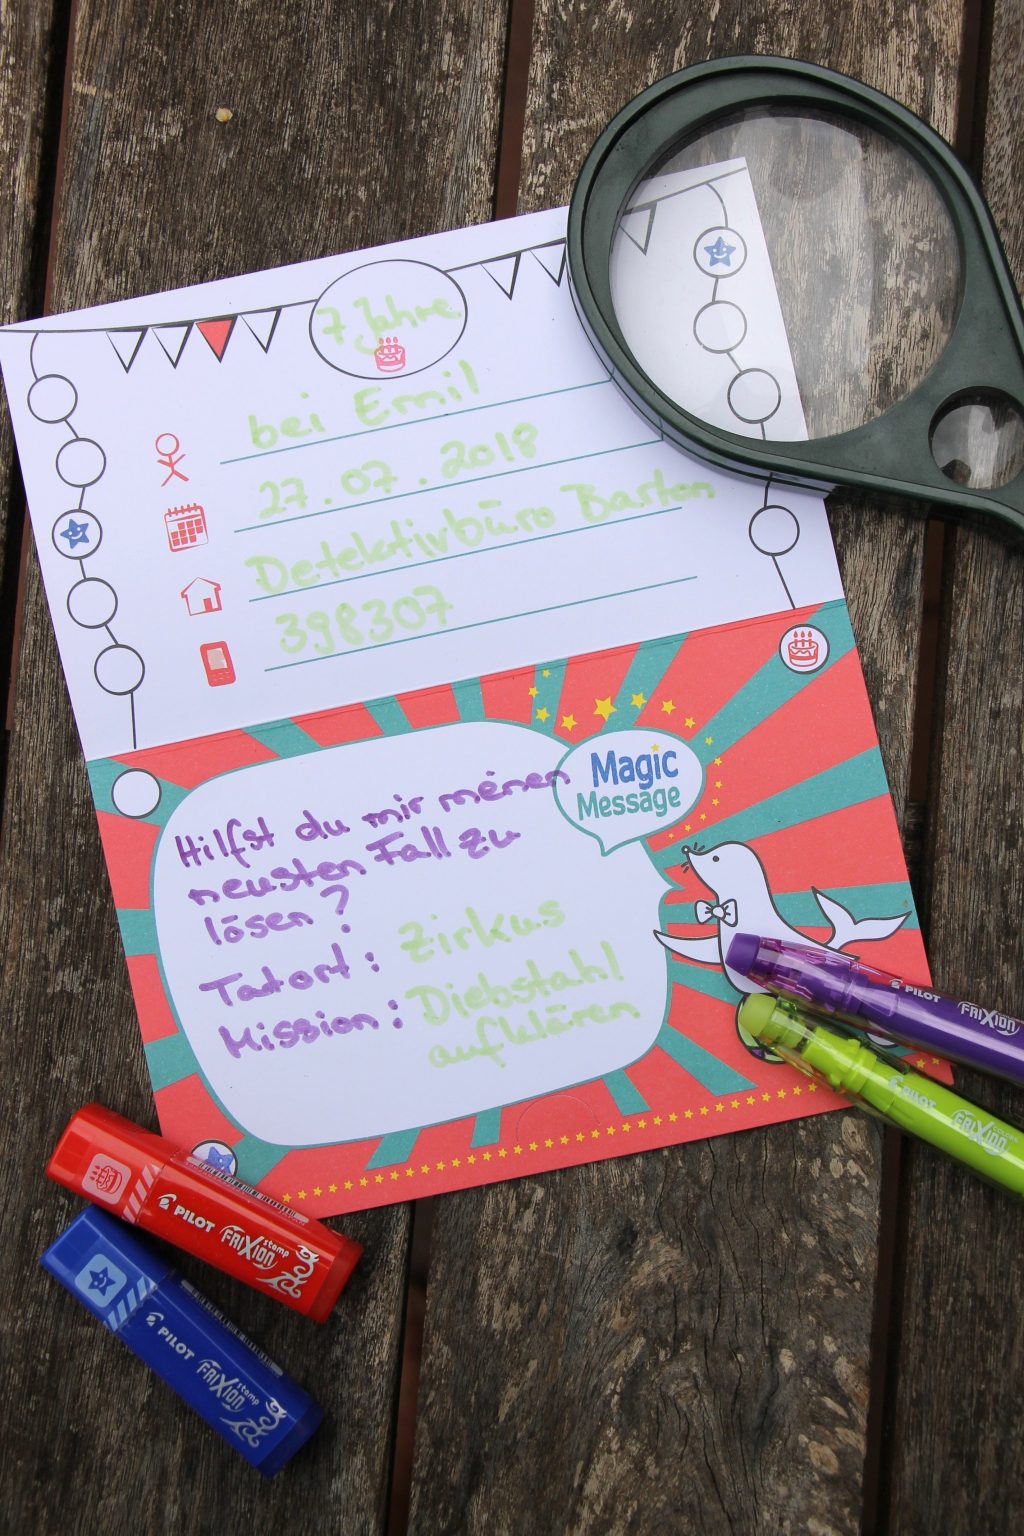 7 Jahre
bei Emil
27.07.2018
Detektivbüro Barton
398307
Magic
Message
Hilfst du mir meinen
neusten Fall zu
lösen?
Tatort: Zirkus
Mission: Diebstahl
aufklären
PILOT FRIXION
PILOT FRIXION COLORS
PILOT FRIXION stamp
PILOT FRIXION stamp